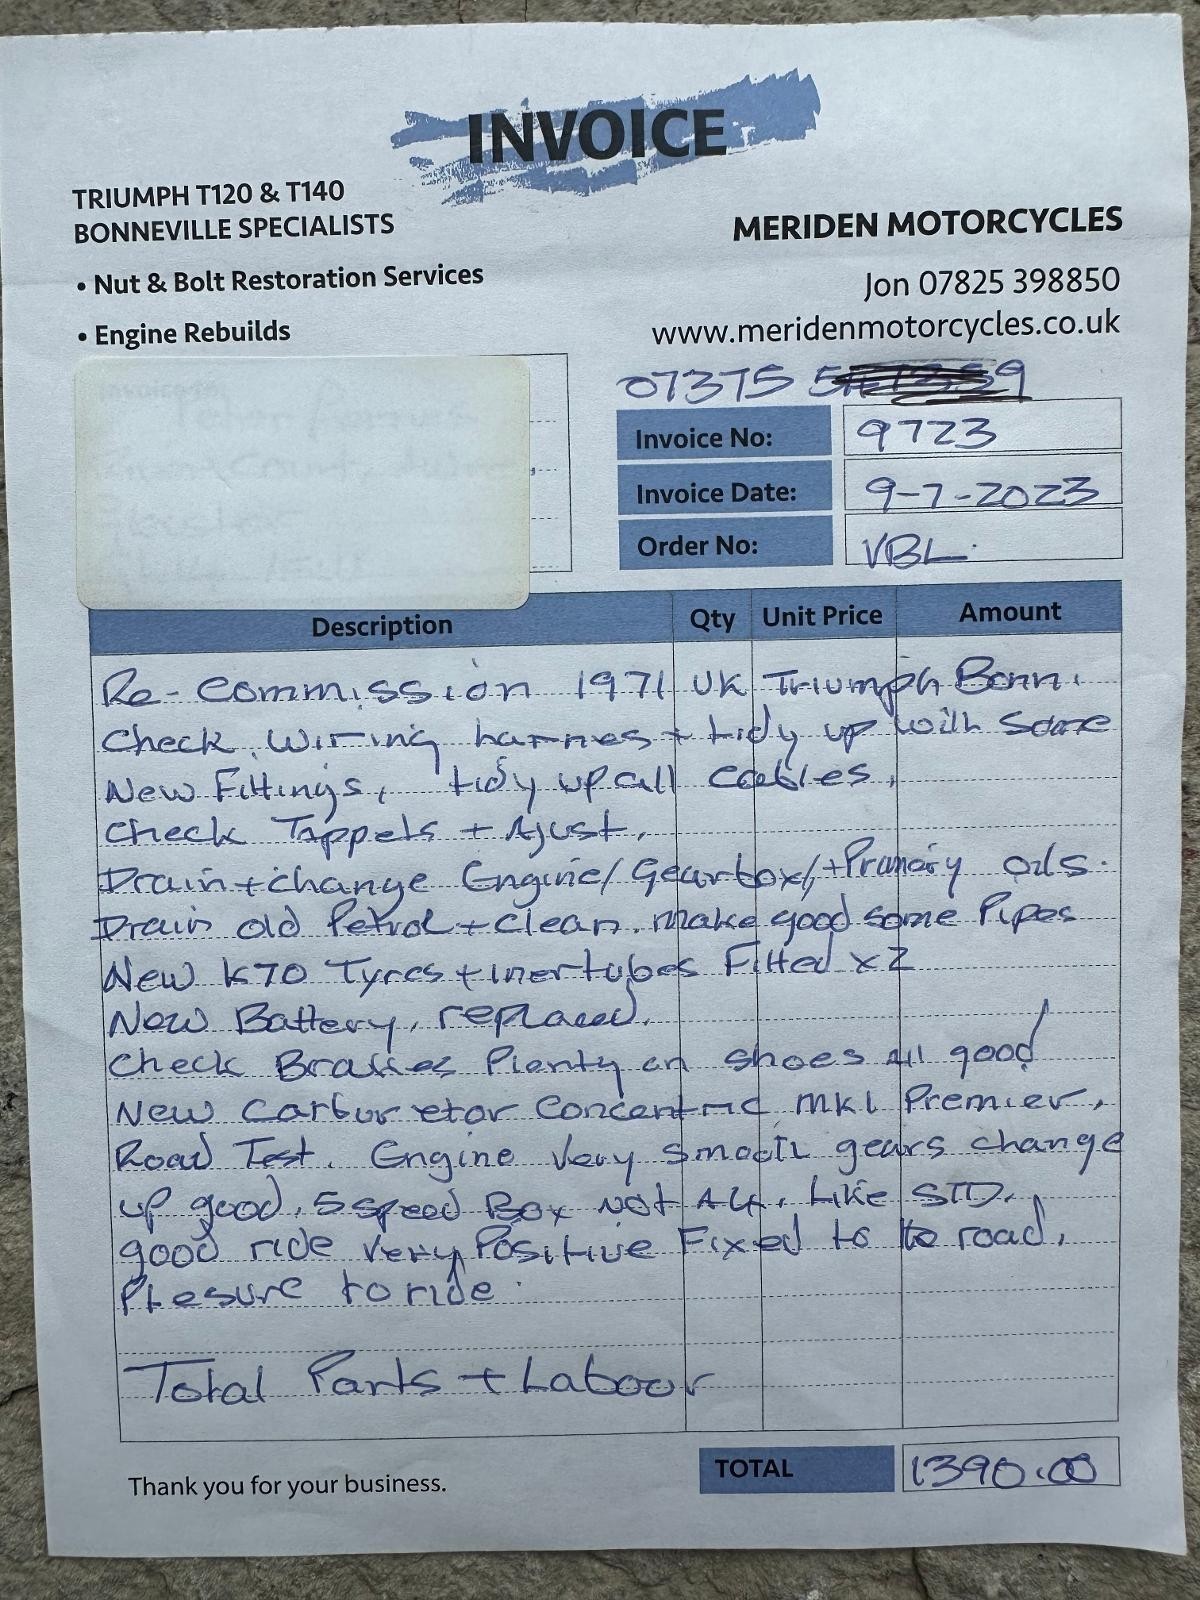 INVOICE
TRIUMPH T120 & T140
BONNEVILLE SPECIALISTS
• Nut & Bolt Restoration Services
• Engine Rebuilds
MERIDEN MOTORCYCLES
Jon 07825 398850
www.meridenmotorcycles.co.uk
07375 5 9
Invoice No: 9723
Invoice Date: 9-7-2023
Order No: VBL.
Description Qty Unit Price Amount
Re-Commission 1971 UK Triumph Bonn.
Check Wiring harnes + tidy up with some
New Fittings, tidy up all cables,
Check Tappets + Ajust,
Drain + change Engine/Gearbox/+Primary oils.
Drain old Petrol + clean. make good some Pipes
New K70 Tyres + inertubes Fitted x 2
New Battery, replaced.
Check Brakes Plenty on shoes all good
New Carburetor Concentric MK1 Premier,
Road Test. Engine very smooth gears change
up good, 5 speed Box not A4, Like STD.
good ride very Positive Fixed to to road,
Plesure to ride.
Total Parts + Labour
TOTAL 1390.00
Thank you for your business.